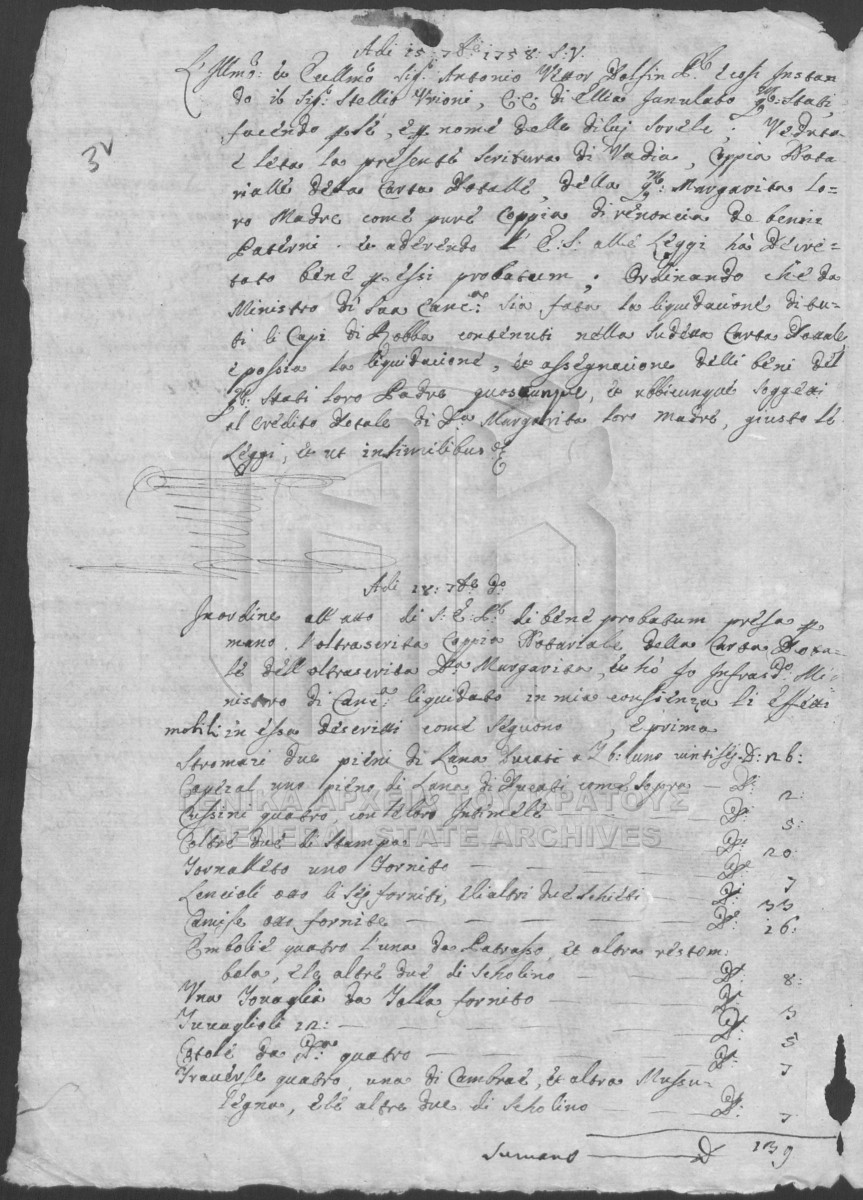 Adi 15: 7bre 1758: S:V.
L'Illmo: et Eccellmo Sigr: Antonio Vettor Dolfin Pr. Così Instan-
do il Sigr: Stellio Vrioni, C:C: di Ella Janulato qm: Stati,
facendo p se, e p nome delle di lui Sorele; Veduta
e leta la presente Scritura di Vadia, Coppia Nota
rialle della Carta Dotalle, della qm: Margarita lo-
ro Madre come pure Coppia di renoncia de benni
Paterni. et aderendo l' E.S. alle Leggi hà Decre-
tato bene p essi probatum; Ordinando che da
Ministro di Sua Cancra sia fata la liquidacione di tu-
ti li Capi di Robba contenuti nella sudetta Carta Dotale
e possia la liquidacione, et assegnacione delli beni del
qm: Stati loro Padre quoscunque, et ubbicunque soggetti
al Credito Dotale di Da Margarita loro madre, giusto le
Leggi, et ut in similibus &
3v
Adi 18: 7bre do
In ordine all'atto di S:E.Pr. di bene probatum presa p
mano l'oltrascrita Coppia Notariale della Carta Dota-
le dell'oltrascrita Da Margarita, et hò Io Infrasto Mi-
nistro di Cancra liquidato in mia consienza li effetti
mobili in essa descritti come seguono, e prima
Stromazi due pieni di Lana Ducati a lb: uno vintisej - D: 26:
Cavezal uno pieno, di Lana di Ducati come sopra — D: 2:
Cussini quatro, con le loro Intimelle — D: 5:
Coltre due di Stampa — D: 20
Tornalleto uno Fornito — D: 7
Lencioli otto li sej forniti, e li altri due schieti — D: 33
Camise otto fornite — D: 16:
Embolie quatro l'una da Patrasso, et altra restom:
bela, e le altre due di Scholino — D: 8:
Una Tovaglia da Tolla fornita — D: 3
Tuvaglioli 12: — D: 5
Cotole da Dna quatro — D: 7
Traverse quatro, una di Cambrae, et altra Mussu-
legna, e le altre due di Scholino — D: 7
Sumano — D 139
ΓΕΝΙΚΑ ΑΡΧΕΙΑ ΤΟΥ ΚΡΑΤΟΥΣ
GENERAL STATE ARCHIVES